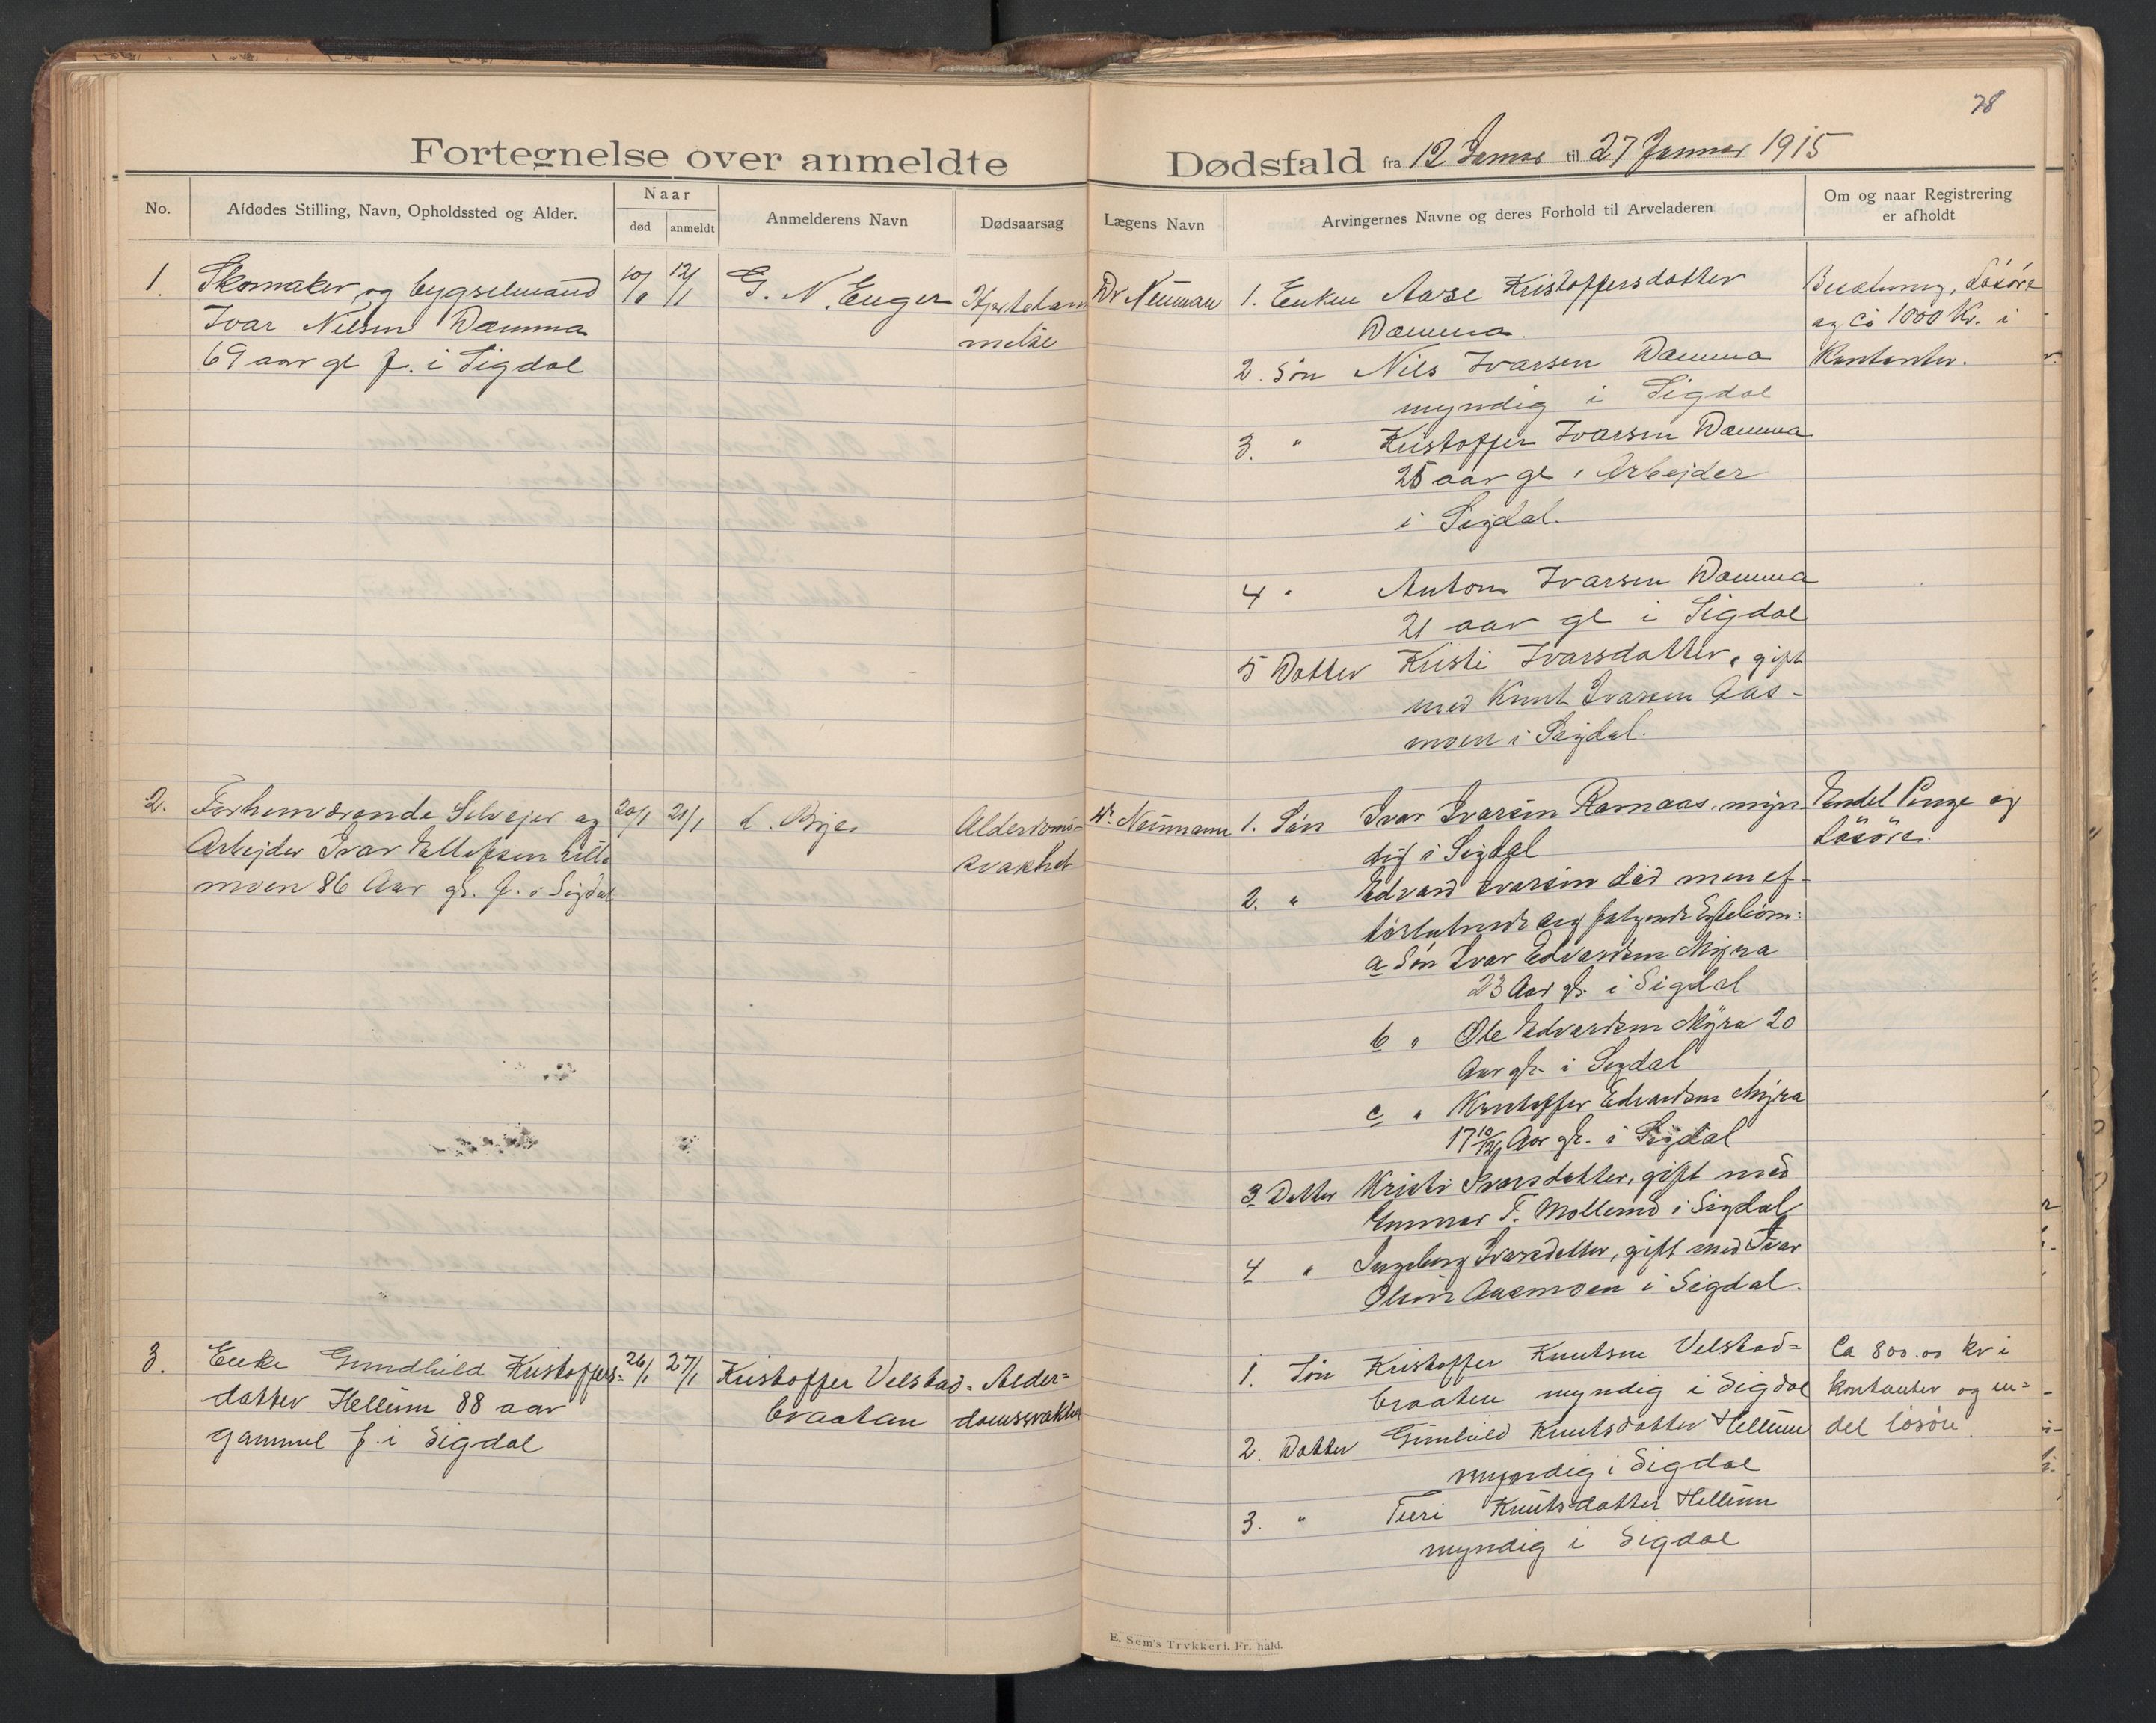 78
Fortegnelse over anmeldte Dødsfald fra 12 Januar til 27 Januar 1915
No.
Afdødes Stilling, Navn, Opholdssted og Alder.
Naar
død
anmeldt
Anmelderens Navn
Dødsaarsag
Lægens Navn
Arvingernes Navne og deres Forhold til Arveladeren
Om og naar Registrering
er afholdt
1.
Skomaker og bygselmand
Ivar Nilsen Damma
69 aar gl f. i Sigdal
10/1
12/1
G. N. Enger
Hjertelam
melse
Dr Neuman
1. Enken Aase Kristoffersdatter
Damma.
2. Søn Nils Ivarsen Damma
myndig i Sigdal
3. " Kristoffer Ivarsen Damma
25 aar gl, Arbejder
i Sigdal.
4 " Anton Ivarsen Damma
21 aar gl i Sigdal
5 Datter Kristi Ivarsdatter, gift
med Knut Ivarsen Aas-
moen i Sigdal.
Besætning, Løsøre
og ca 1000 Kr. i
Kontanter.
2.
Forhenværende Selvejer og
Arbejder Ivar Ellefsen Lille
moen 86 Aar gl. f. i Sigdal
20/1
21/1
Alderdoms-
svakhet
Dr. Neumann
1. Søn Ivar Ivarsen Ramaas, myn-
dig i Sigdal
2. " Edvard Ivarsen død men ef-
terladende seg følgende Ektebørn:
a Søn Ivar Edvardsen Myra
23 Aar gl. i Sigdal
b " Ole Edvardsen Myra 20
Aar gl. i Sigdal
c " Kristoffer Edvardsen Myra
17 10/12 Aar gl. i Sigdal
3 Datter Kristi Ivarsdatter, gift med
Gunnar T. Mollerud i Sigdal
4 " Ingeborg Ivarsdatter, gift med Ivar
Olsen Aasmoen i Sigdal.
Endel Penge og
Løsøre.
3.
Enke Gundhild Kristoffers-
datter Hellum 88 aar
gammel f. i Sigdal
26/1
27/1
Kristoffer Velstad-
braatan
Alder-
domssvakhet
1. Søn Kristoffer Knutsen Velstad-
braaten myndig i Sigdal
2. Datter Gunhild Knutsdatter Hellum
myndig i Sigdal
3. " Turi Knutsdatter Hellum
myndig i Sigdal
Ca 800.00 kr i
kontanter og en-
del løsøre.
E. Sem's Trykkeri, Fr. hald.